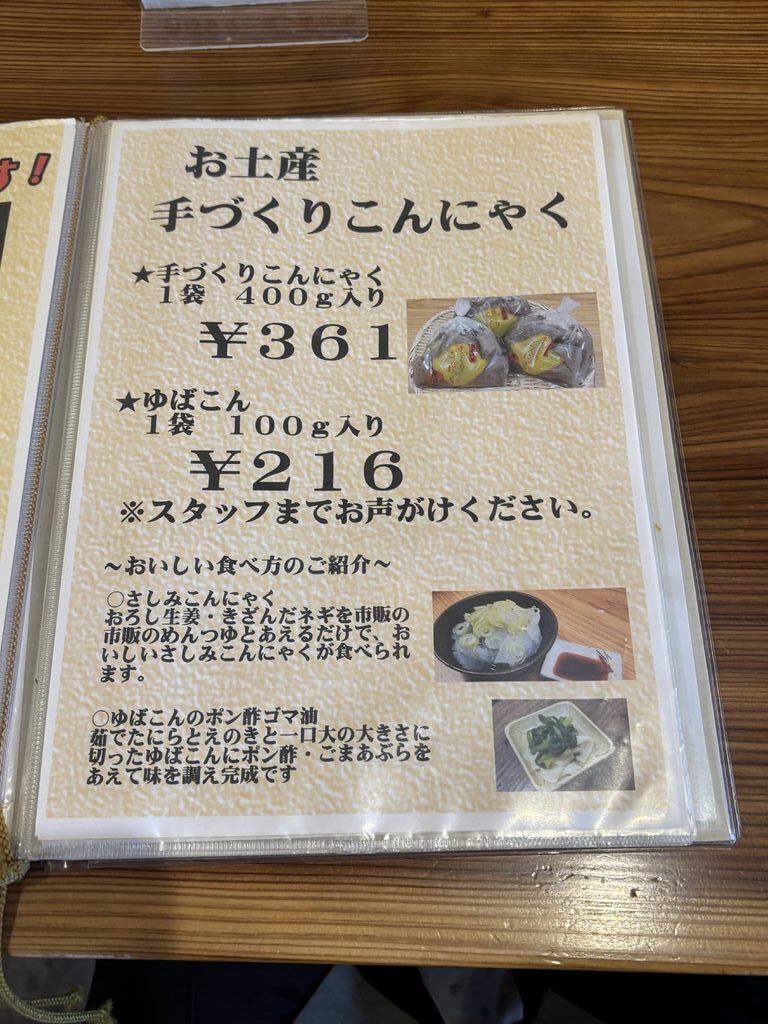 す！
お土産
手づくりこんにゃく
★手づくりこんにゃく
１袋　４００ｇ入り
￥３６１
★ゆばこん
１袋　１００ｇ入り
￥２１６
※スタッフまでお声がけください。
～おいしい食べ方のご紹介～
○さしみこんにゃく
おろし生姜・きざんだネギを市販の
市販のめんつゆとあえるだけで、お
いしいさしみこんにゃくが食べられ
ます。
○ゆばこんのポン酢ゴマ油
茹でたにらとえのきと一口大の大きさに
切ったゆばこんにポン酢・ごまあぶらを
あえて味を調え完成です